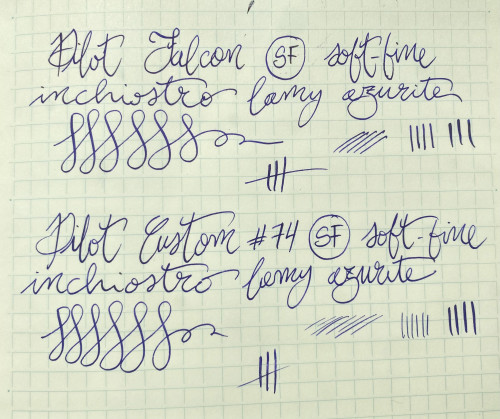 Pilot Falcon SF soft-fine
inchiostro lamy azurite
Pilot Custom #74 SF soft-fine
inchiostro lamy azurite